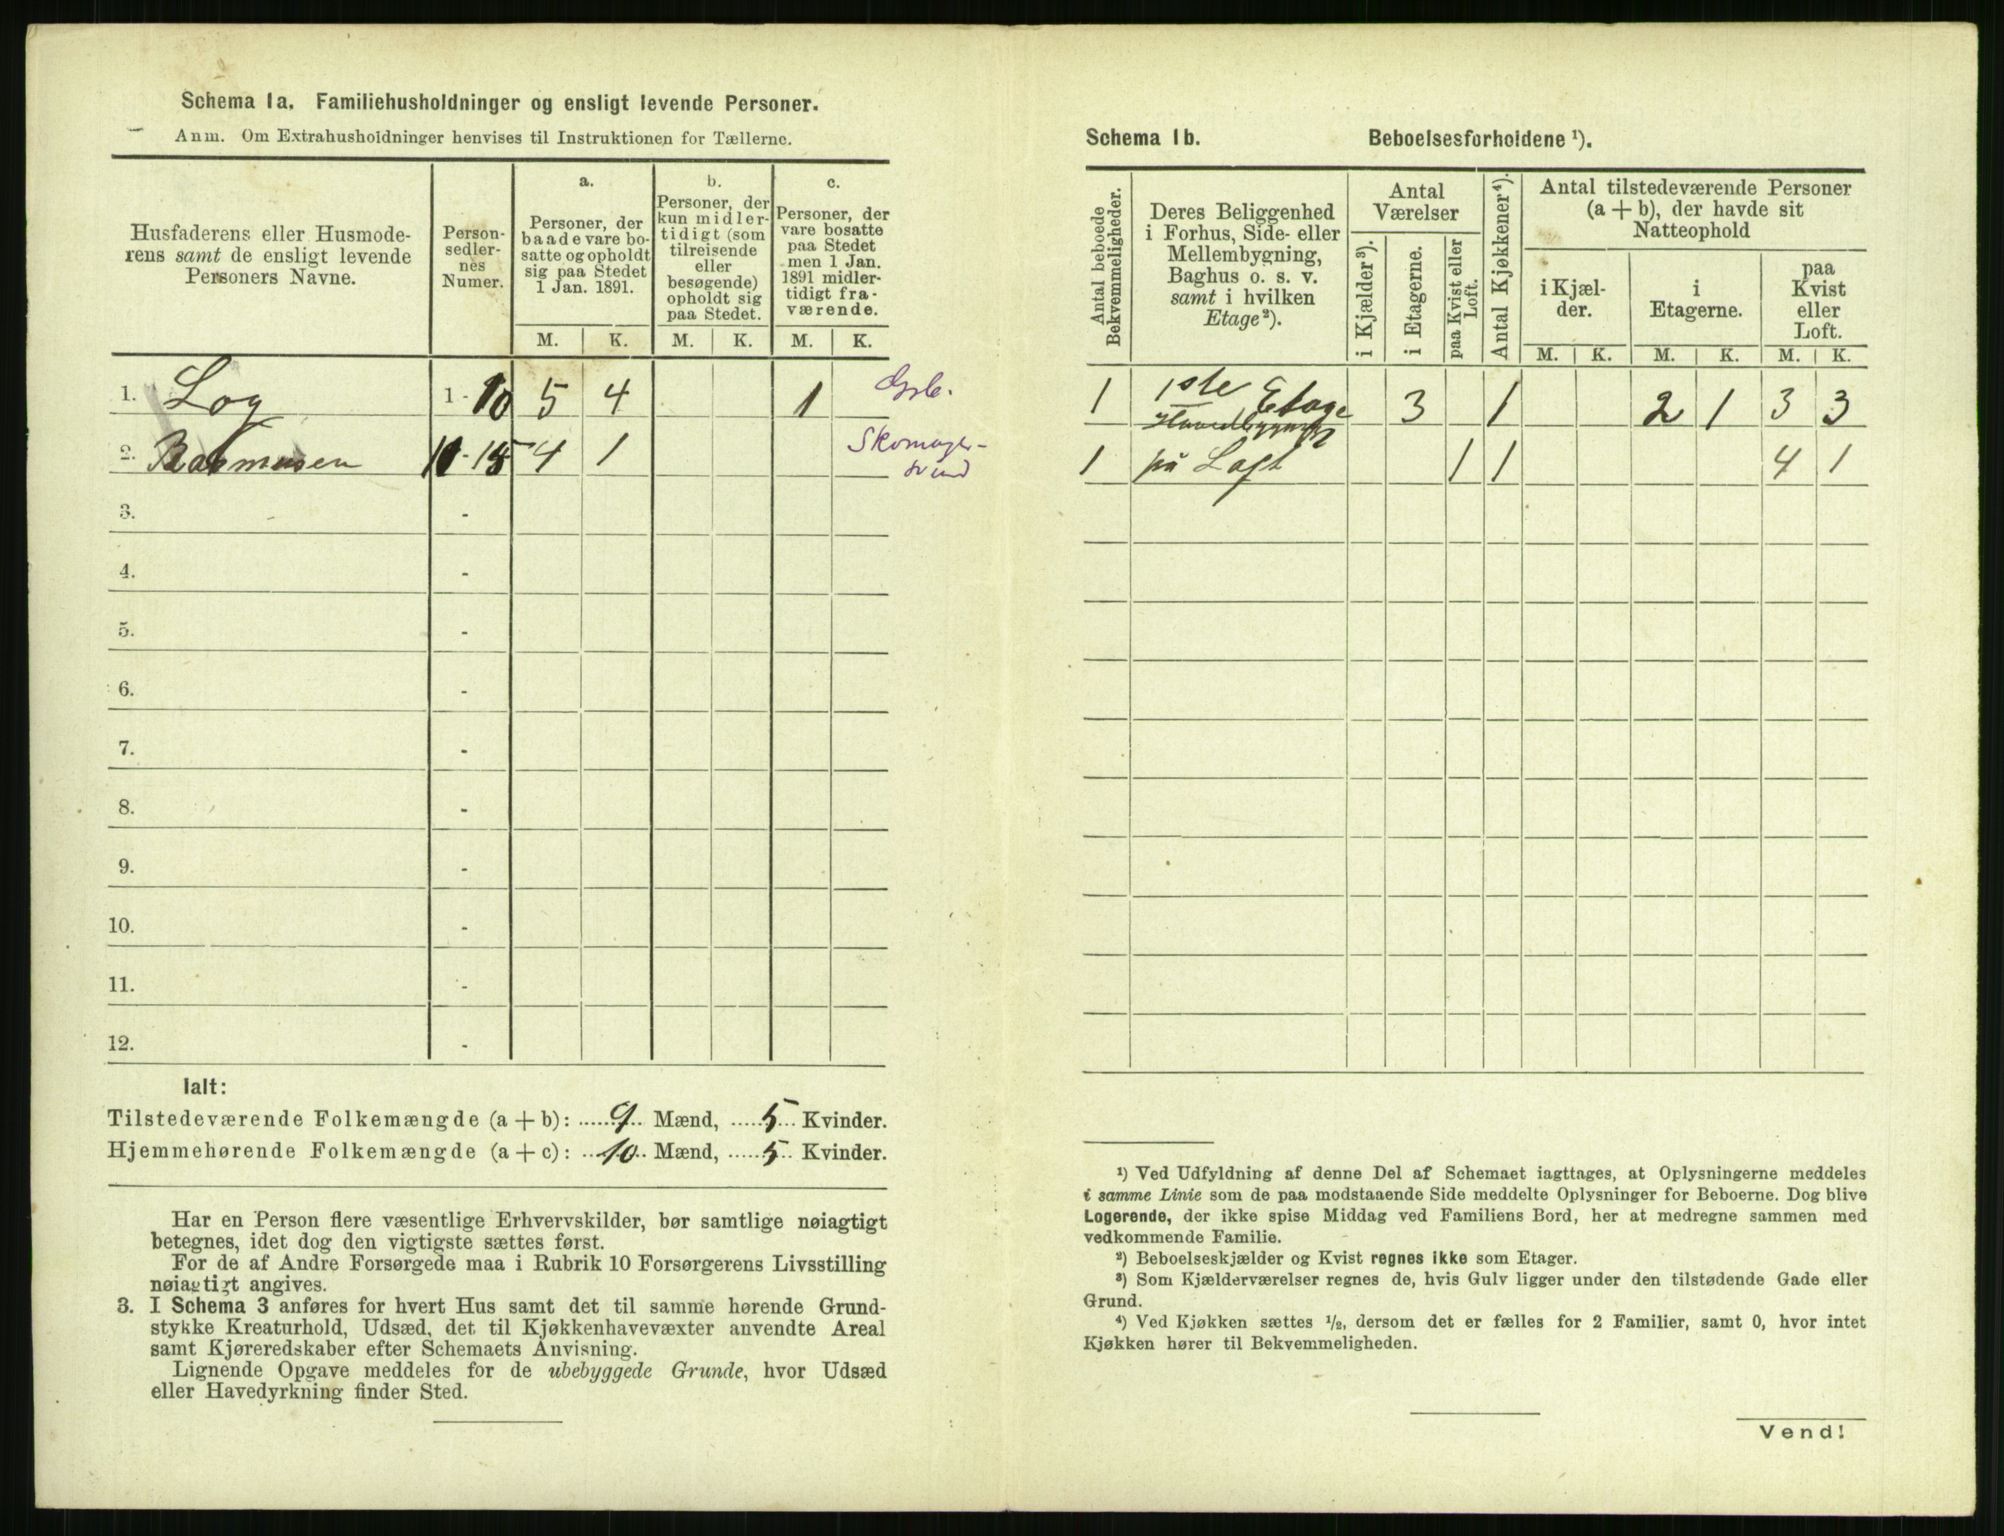 Schema 1a. Familiehusholdninger og ensligt levende Personer.
Anm. Om Extrahusholdninger henvises til Instruktionen for Tællerne.
Husfaderens eller Husmode-
rens samt de ensligt levende
Personers Navne.
Person-
sedler-
nes
Numer.
a.
Personer, der
baade vare bo-
satte og opholdt
sig paa Stedet
1 Jan. 1891.
b.
Personer, der
kun midler-
tidigt (som
tilreisende
eller
besøgende)
opholdt sig
paa Stedet.
c.
Personer, der
vare bosatte
paa Stedet
men 1 Jan.
1891 midler-
tidigt fra-
værende.
M. K. M. K. M. K.
1. Log 1 - 10 5 4 1
2. Rasmussen 11 - 15 4 1 Skomager-
svend
3. -
4. -
5. -
6. -
7. -
8. -
9. -
10. -
11. -
12. -
Ialt:
Tilstedeværende Folkemængde (a + b): 9 Mænd, 5 Kvinder.
Hjemmehørende Folkemængde (a + c): 10 Mænd, 5 Kvinder.
Har en Person flere væsentlige Erhvervskilder, bør samtlige nøiagtigt
betegnes, idet dog den vigtigste sættes først.
For de af Andre Forsørgede maa i Rubrik 10 Forsørgerens Livsstilling
nøiagtigt angives.
3. I Schema 3 anføres for hvert Hus samt det til samme hørende Grund-
stykke Kreaturhold, Udsæd, det til Kjøkkenhavevæxter anvendte Areal
samt Kjøreredskaber efter Schemaets Anvisning.
Lignende Opgave meddeles for de ubebyggede Grunde, hvor Udsæd
eller Havedyrkning finder Sted.
Schema 1b. Beboelsesforholdene ¹).
Antal beboede
Bekvemmeligheder.
Deres Beliggenhed
i Forhus, Side- eller
Mellembygning,
Baghus o. s. v.
samt i hvilken
Etage²).
Antal
Værelser
i Kjælder³).
i Etagerne.
paa Kvist eller
Loft.
Antal Kjøkkener⁴).
Antal tilstedeværende Personer
(a + b), der havde sit
Natteophold
i Kjæl-
der.
i
Etagerne.
paa
Kvist
eller
Loft.
M. K. M. K. M. K.
1 1ste Etage 3 1 2 1 3 3
Hovedbygning
1 på Loft 1 1 4 1
¹) Ved Udfyldning af denne Del af Schemaet iagttages, at Oplysningerne meddeles
i samme Linie som de paa modstaaende Side meddelte Oplysninger for Beboerne. Dog blive
Logerende, der ikke spise Middag ved Familiens Bord, her at medregne sammen med
vedkommende Familie.
²) Beboelseskjælder og Kvist regnes ikke som Etager.
³) Som Kjælderværelser regnes de, hvis Gulv ligger under den tilstødende Gade eller
Grund.
⁴) Ved Kjøkken sættes ½, dersom det er fælles for 2 Familier, samt 0, hvor intet
Kjøkken hører til Bekvemmeligheden.
Vend!